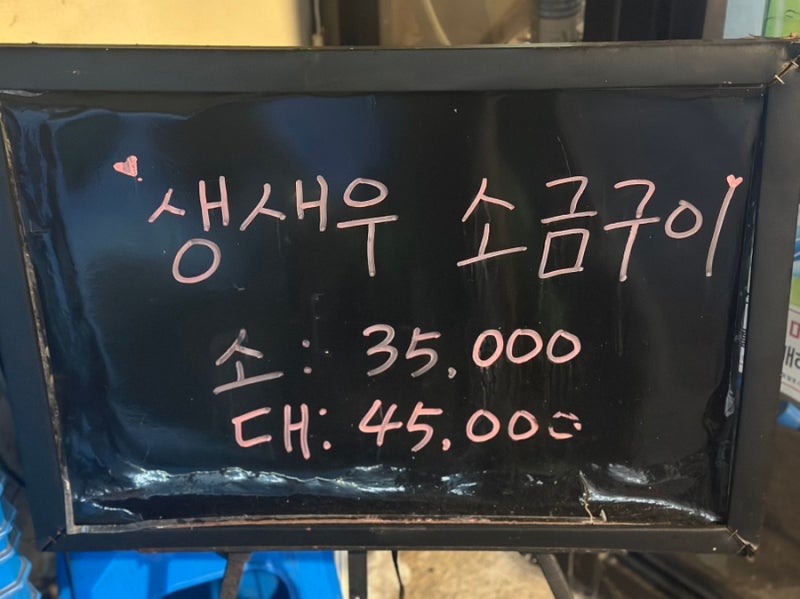 생새우 소금구이
소: 35,000
대: 45,000